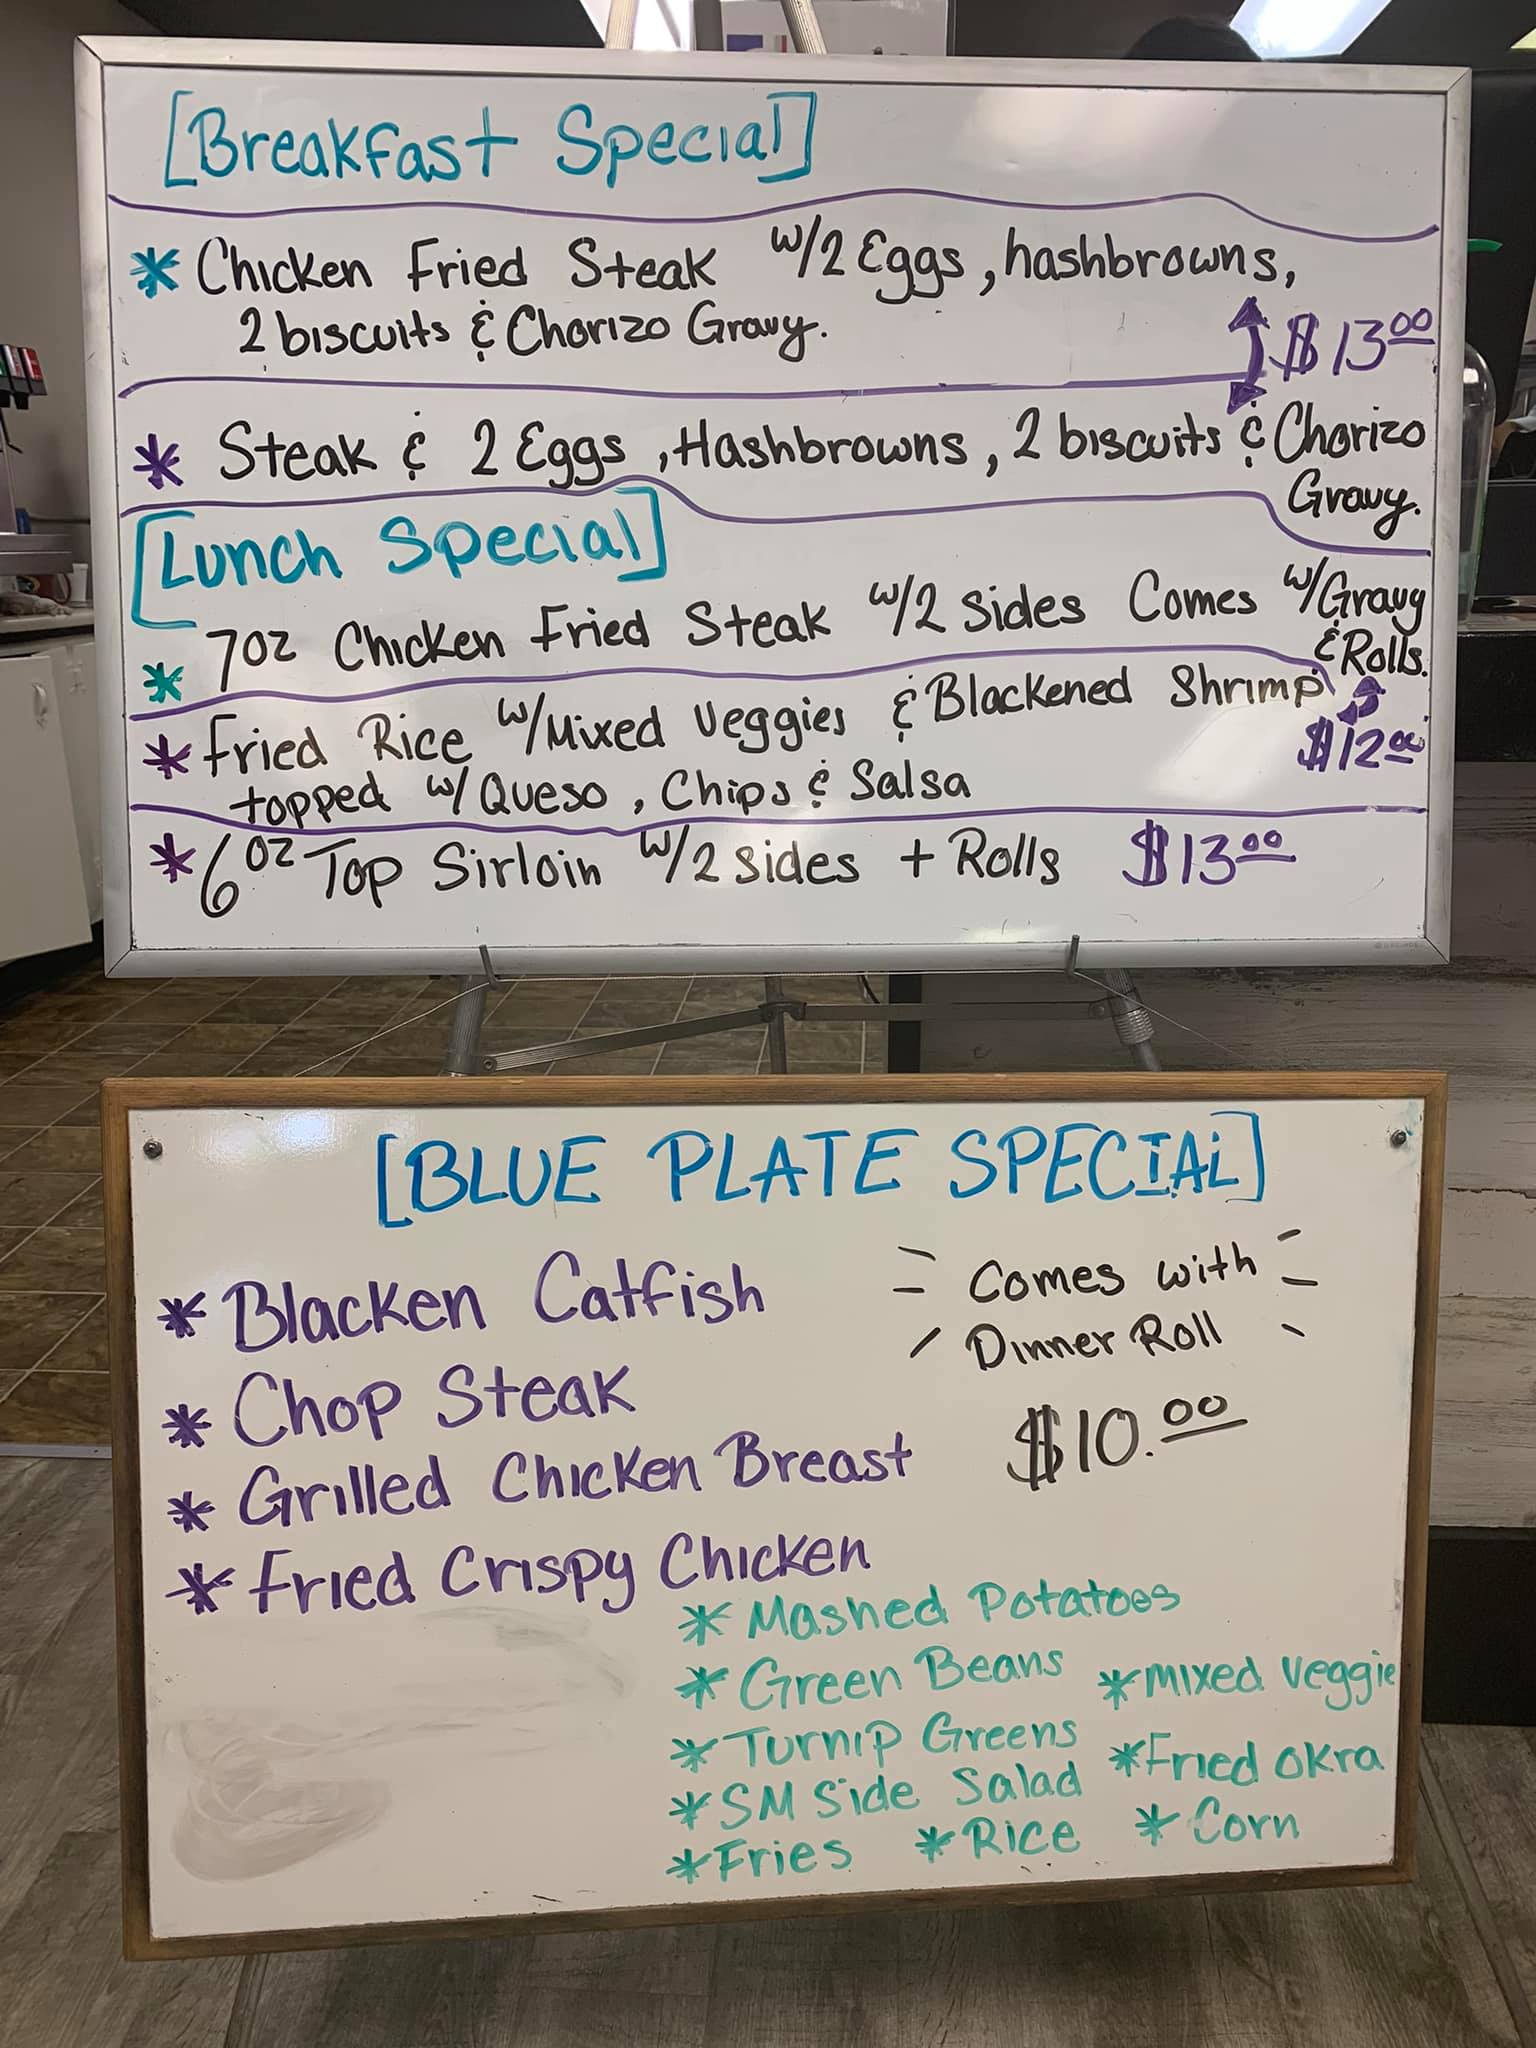 [Breakfast Special]
* Chicken Fried Steak w/2 Eggs, hashbrowns,
2 biscuits & Chorizo Gravy.
$13.00
* Steak & 2 Eggs, Hashbrowns, 2 biscuits & Chorizo
Gravy.
[Lunch Special]
* 7oz Chicken Fried Steak w/2 sides Comes w/Gravy
& Rolls.
* Fried Rice w/Mixed Veggies & Blackened Shrimp
topped w/Queso, Chips & Salsa
$12.00
* 6oz Top Sirloin w/2 sides + Rolls $13.00
[BLUE PLATE SPECIAL]
* Blacken Catfish
Comes with
Dinner Roll
* Chop Steak
$10.00
* Grilled Chicken Breast
* Fried Crispy Chicken
* Mashed Potatoes
* Green Beans * Mixed Veggie
* Turnip Greens * Fried Okra
* SM Side Salad
* Fries * Rice * Corn